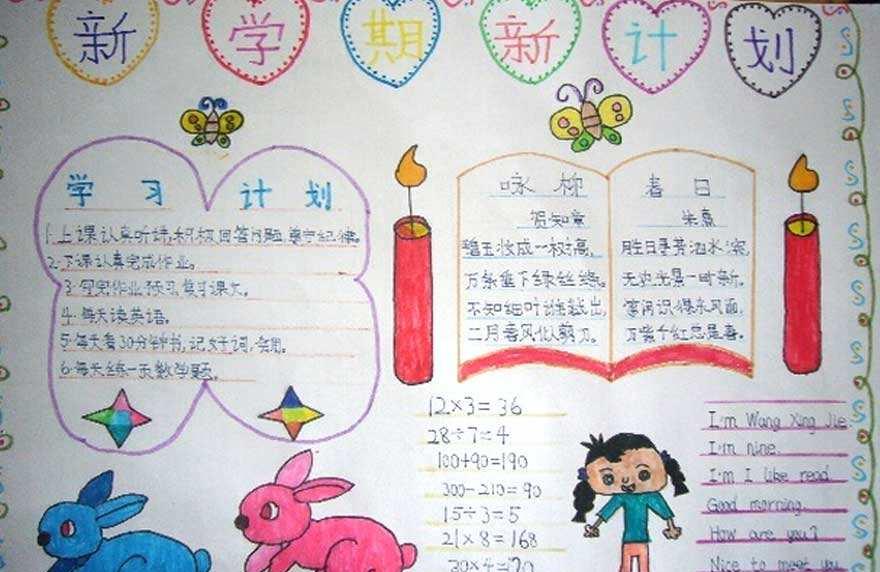 新学期新计划
学习计划
1. 上课认真听讲,积极回答问题,遵守纪律。
2. 下课认真完成作业。
3. 写完作业,预习,复习课文。
4. 每天读英语。
5. 每天看30分钟书,记好词,
6. 每天练一页数学题。
咏柳
贺知章
碧玉妆成一树高,
万条垂下绿丝绦。
不知细叶谁裁出,
二月春风似剪刀。
春日
朱熹
胜日寻芳泗水滨,
无边光景一时新。
等闲识得东风面,
万紫千红总是春。
12×3=36
28÷7=4
100+90=190
300-210=90
15÷3=5
21×8=168
I'm Wang Xing Jie.
I'm nine.
I'm I like read
Good morning.
How are you?
Nice to meet you